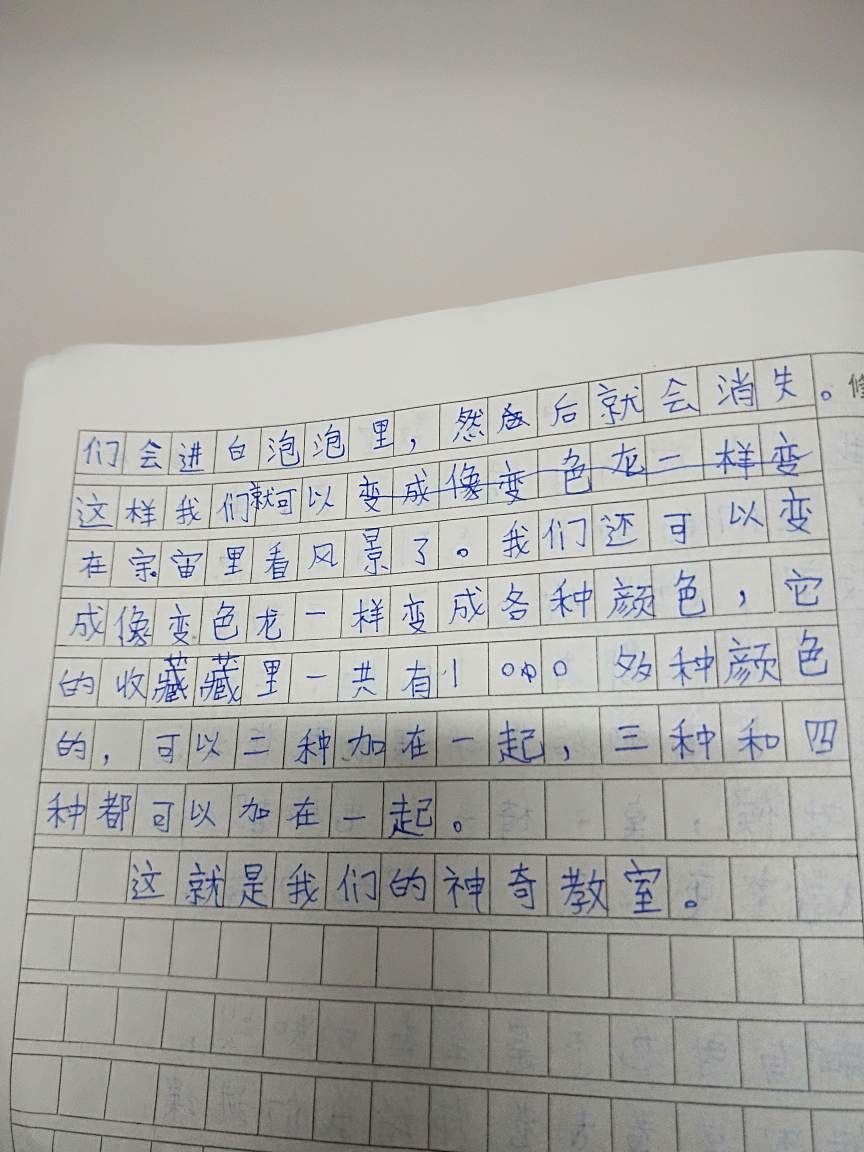 们会进白泡泡里，然后就会消失。
这样我们就可以变成像变色龙一样变
在宇宙里看风景了。我们还可以变
成像变色龙一样变成各种颜色，它
的收藏藏里一共有1000多种颜色
的，可以二种加在一起，三种和四
种都可以加在一起。
这就是我们的神奇教室。